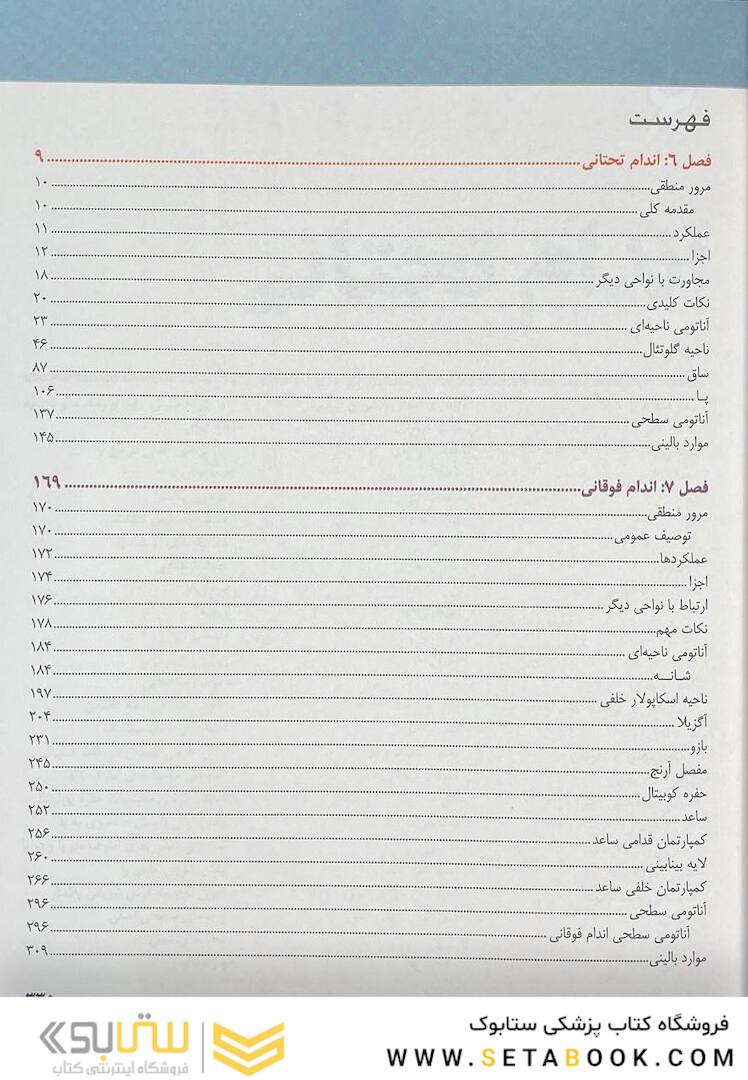 فهرست
فصل ٦: اندام تحتانی ... ۹
مرور منطقی ... ۱۰
مقدمه کلی ... ۱۰
عملکرد ... ۱۱
اجزا ... ۱۲
مجاورت با نواحی دیگر ... ۱۸
نکات کلیدی ... ۲۰
آناتومی ناحیه‌ای ... ۲۳
ناحیه گلوتئال ... ۴۶
ساق ... ۸۷
پا ... ۱۰۶
آناتومی سطحی ... ۱۳۷
موارد بالینی ... ۱۴۵
فصل ۷: اندام فوقانی ... ۱۶۹
مرور منطقی ... ۱۷۰
توصیف عمومی ... ۱۷۰
عملکردها ... ۱۷۲
اجزا ... ۱۷۴
ارتباط با نواحی دیگر ... ۱۷۶
نکات مهم ... ۱۷۸
آناتومی ناحیه‌ای ... ۱۸۴
شانه ... ۱۸۴
ناحیه اسکاپولار خلفی ... ۱۹۷
آگزیلا ... ۲۰۴
بازو ... ۲۳۱
مفصل آرنج ... ۲۴۵
حفره کوبیتال ... ۲۵۰
ساعد ... ۲۵۲
کمپارتمان قدامی ساعد ... ۲۵۶
لایه بینابینی ... ۲۶۰
کمپارتمان خلفی ساعد ... ۲۶۶
آناتومی سطحی ... ۲۹۶
آناتومی سطحی اندام فوقانی ... ۲۹۶
موارد بالینی ... ۳۰۹
فروشگاه کتاب پزشکی ستابوک
WWW.SETABOOK.COM
ستابوک
فروشگاه اینترنتی کتاب